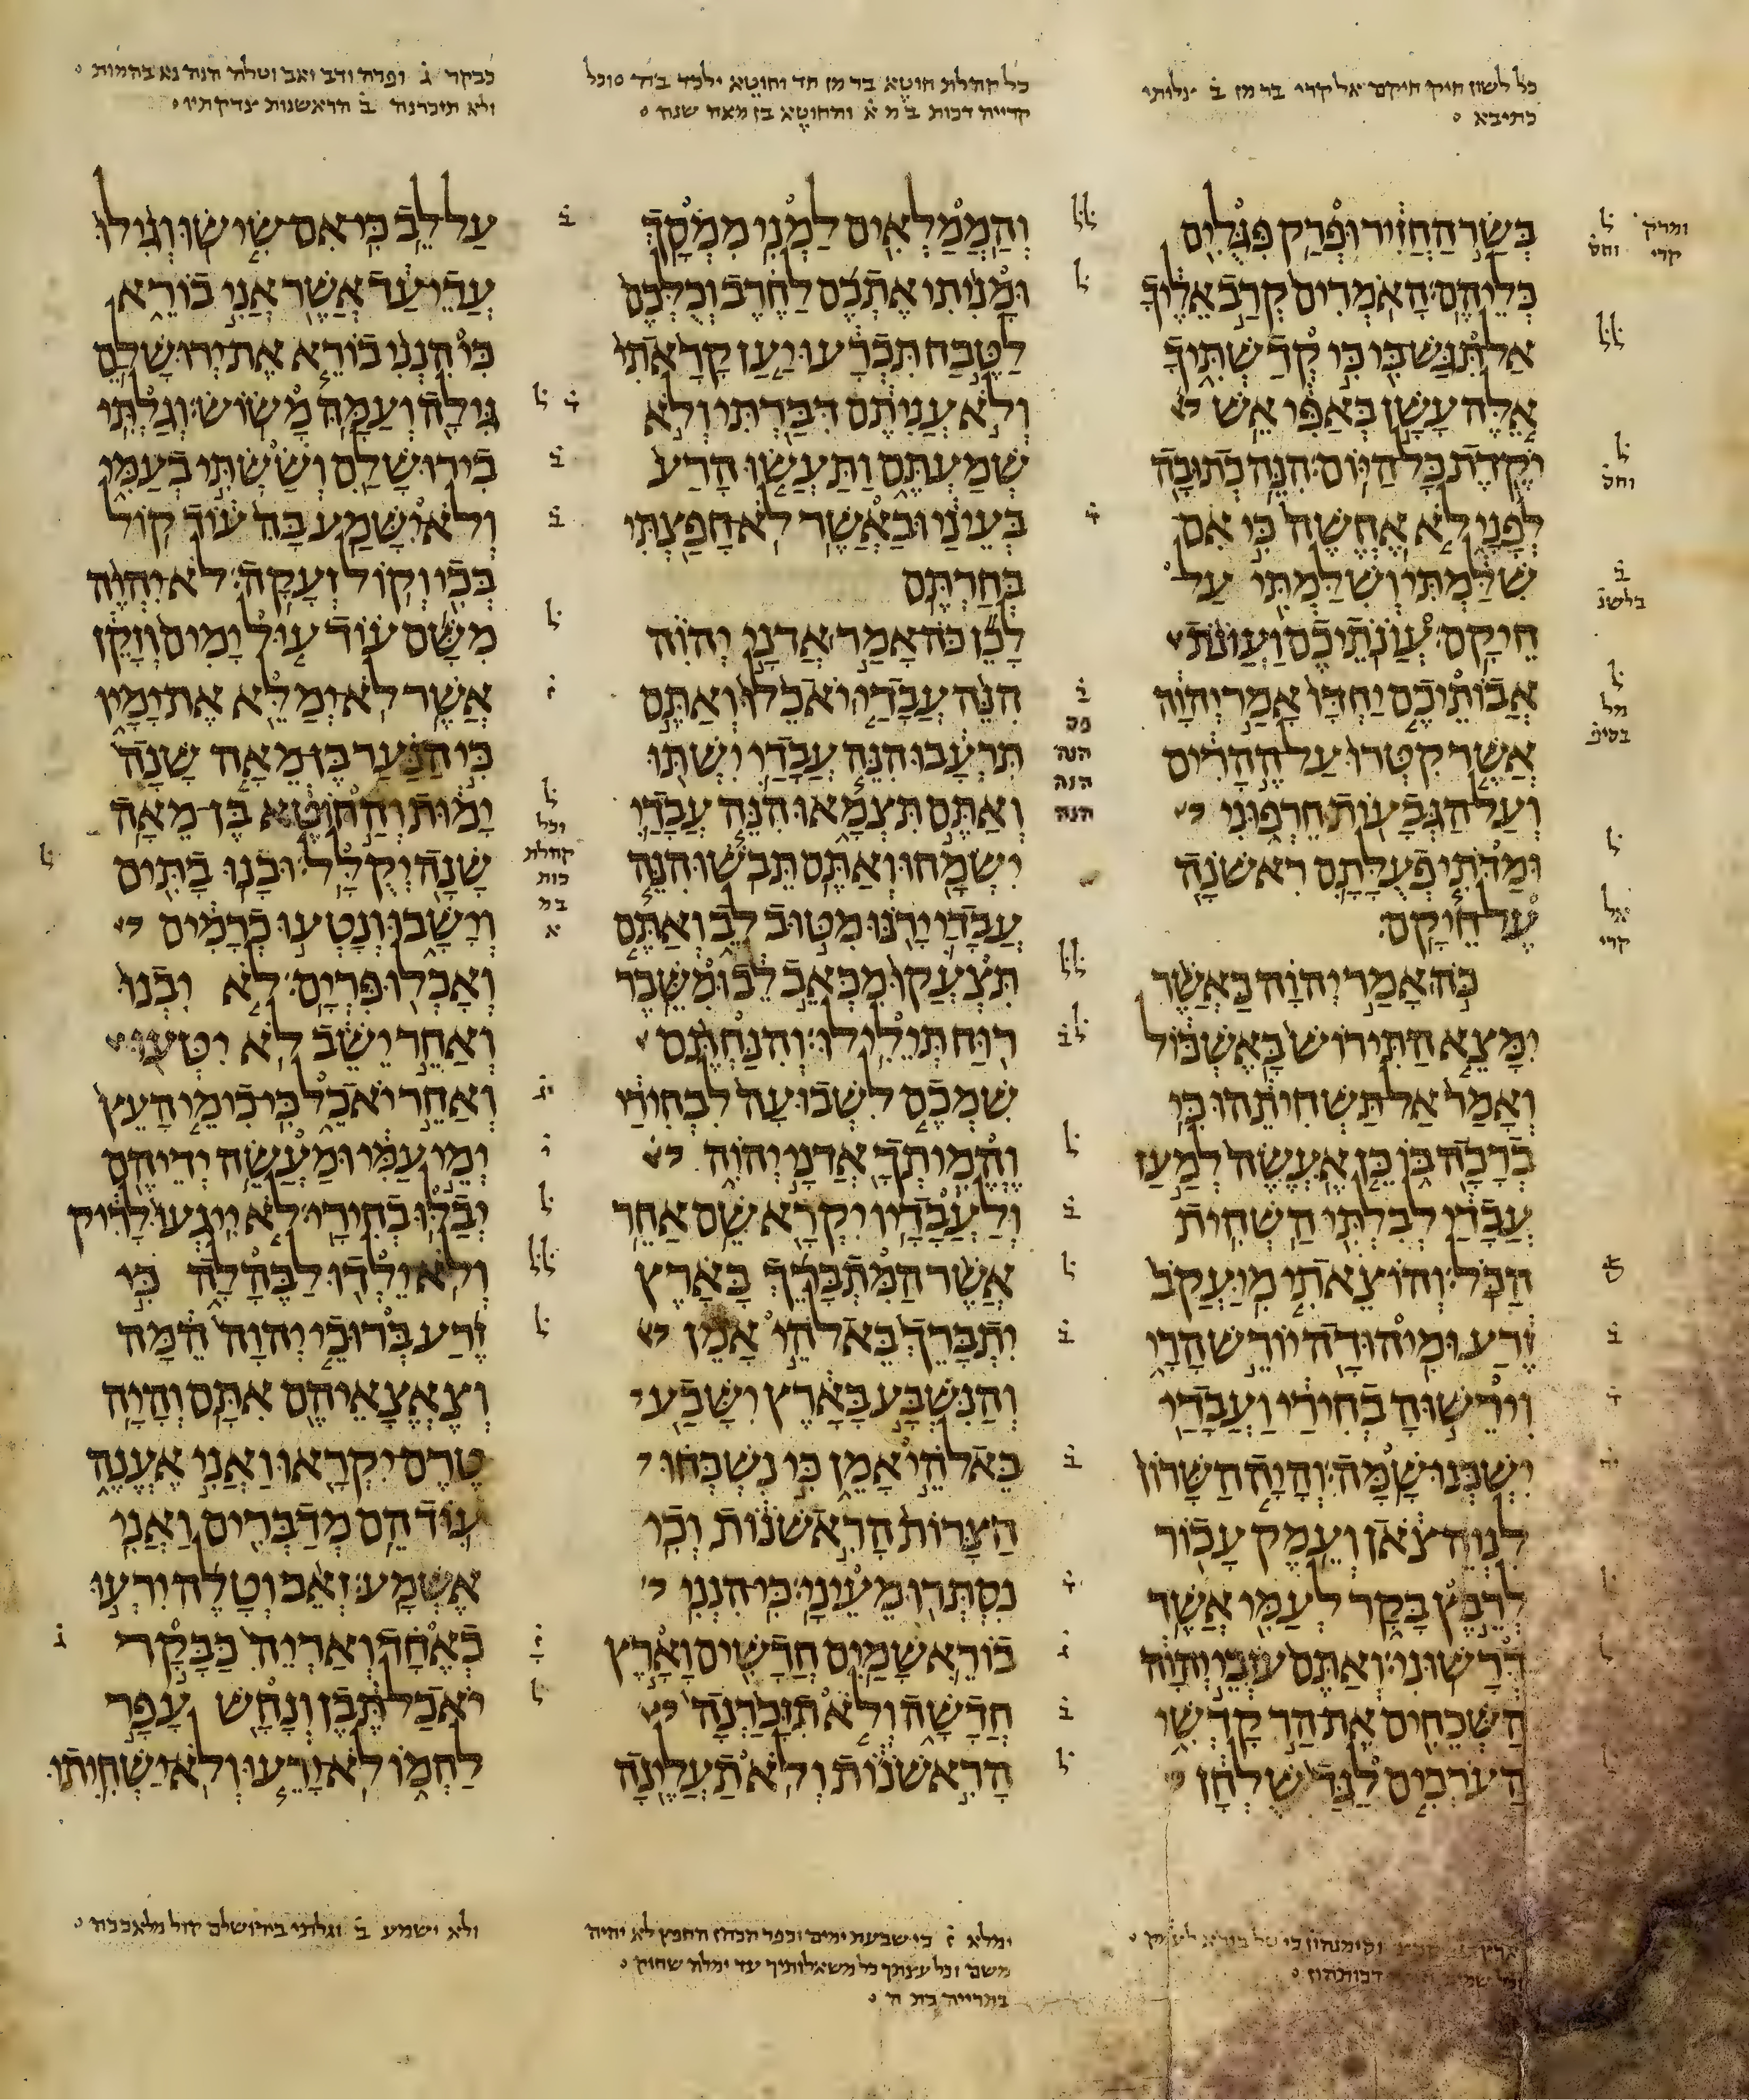 כל לשון חיק חיקם אל קרי בר מן ב̇
כתיבא
כל קהלת חוטא בר מן חד וחוטא ילכד בה וכל
קרייה דכות ב מ א והחוטא בן מאה שנה
כבקר ג̇ ופרה ודב ואב וטלה הנה נא בהמות
ולא תזכרנה ב̇ הראשנות צדקתיו
בְּשַׂר הַחֲזִיר וּפְרַק פִּגֻּלִים
כְּלֵיהֶם׃ הָאֹמְרִים קְרַב אֵלֶיךָ
אַל תִּגַּשׁ בִּי כִּי קְדַשְׁתִּיךָ
אֵלֶּה עָשָׁן בְּאַפִּי אֵשׁ
יֹקֶדֶת כָּל הַיּוֹם׃ הִנֵּה כְתוּבָה
לְפָנָי לֹא אֶחֱשֶׂה כִּי אִם
שִׁלַּמְתִּי וְשִׁלַּמְתִּי עַל
חֵיקָם׃ עֲוֹנֹתֵיכֶם וַעֲוֹנֹת
אֲבוֹתֵיכֶם יַחְדָּו אָמַר יְהוָה
אֲשֶׁר קִטְּרוּ עַל הֶהָרִים
וְעַל הַגְּבָעוֹת חֵרְפוּנִי
וּמַדֹּתִי פְעֻלָּתָם רִאשֹׁנָה
עַל חֵיקָם׃
כֹּה אָמַר יְהוָה כַּאֲשֶׁר
יִמָּצֵא הַתִּירוֹשׁ בָּאֶשְׁכּוֹל
וְאָמַר אַל תַּשְׁחִיתֵהוּ כִּי
בְרָכָה בּוֹ כֵּן אֶעֱשֶׂה לְמַעַן
עֲבָדַי לְבִלְתִּי הַשְׁחִית
הַכֹּל׃ וְהוֹצֵאתִי מִיַּעֲקֹב
זֶרַע וּמִיהוּדָה יוֹרֵשׁ הָרָי
וִירֵשׁוּהָ בְחִירַי וַעֲבָדַי
יִשְׁכְּנוּ שָׁמָּה׃ וְהָיָה הַשָּׁרוֹן
לִנְוֵה צֹאן וְעֵמֶק עָכוֹר
לְרֵבֶץ בָּקָר לְעַמִּי אֲשֶׁר
דְּרָשׁוּנִי׃ וְאַתֶּם עֹזְבֵי יְהוָה
הַשְּׁכֵחִים אֶת הַר קָדְשִׁי
הַעֹרְכִים לַגַּד שֻׁלְחָן
וְהַמְמַלְאִים לַמְנִי מִמְסָךְ׃
וּמָנִיתִי אֶתְכֶם לַחֶרֶב וְכֻלְּכֶם
לַטֶּבַח תִּכְרָעוּ יַעַן קָרָאתִי
וְלֹא עֲנִיתֶם דִּבַּרְתִּי וְלֹא
שְׁמַעְתֶּם וַתַּעֲשׂוּ הָרַע
בְּעֵינַי וּבַאֲשֶׁר לֹא חָפַצְתִּי
בְּחַרְתֶּם׃
לָכֵן כֹּה אָמַר אֲדֹנָי יְהוִה
הִנֵּה עֲבָדַי יֹאכֵלוּ וְאַתֶּם
תִּרְעָבוּ הִנֵּה עֲבָדַי יִשְׁתּוּ
וְאַתֶּם תִּצְמָאוּ הִנֵּה עֲבָדַי
יִשְׂמָחוּ וְאַתֶּם תֵּבֹשׁוּ׃ הִנֵּה
עֲבָדַי יָרֹנּוּ מִטּוּב לֵב וְאַתֶּם
תִּצְעֲקוּ מִכְּאֵב לֵב וּמִשֵּׁבֶר
רוּחַ תְּיֵלִילוּ׃ וְהִנַּחְתֶּם
שִׁמְכֶם לִשְׁבוּעָה לִבְחִירַי
וֶהֱמִיתְךָ אֲדֹנָי יְהוִה
וְלַעֲבָדָיו יִקְרָא שֵׁם אַחֵר׃
אֲשֶׁר הַמִּתְבָּרֵךְ בָּאָרֶץ
יִתְבָּרֵךְ בֵּאלֹהֵי אָמֵן
וְהַנִּשְׁבָּע בָּאָרֶץ יִשָּׁבַע
בֵּאלֹהֵי אָמֵן כִּי נִשְׁכְּחוּ
הַצָּרוֹת הָרִאשֹׁנוֹת וְכִי
נִסְתְּרוּ מֵעֵינָי׃ כִּי הִנְנִי
בוֹרֵא שָׁמַיִם חֲדָשִׁים וָאָרֶץ
חֲדָשָׁה וְלֹא תִזָּכַרְנָה
הָרִאשֹׁנוֹת וְלֹא תַעֲלֶינָה
עַל לֵב׃ כִּי אִם שִׂישׂוּ וְגִילוּ
עֲדֵי עַד אֲשֶׁר אֲנִי בוֹרֵא
כִּי הִנְנִי בוֹרֵא אֶת יְרוּשָׁלַ͏ִם
גִּילָה וְעַמָּהּ מָשׂוֹשׂ׃ וְגַלְתִּי
בִירוּשָׁלַ͏ִם וְשַׂשְׂתִּי בְעַמִּי
וְלֹא יִשָּׁמַע בָּהּ עוֹד קוֹל
בְּכִי וְקוֹל זְעָקָה׃ לֹא יִהְיֶה
מִשָּׁם עוֹד עוּל יָמִים וְזָקֵן
אֲשֶׁר לֹא יְמַלֵּא אֶת יָמָיו
כִּי הַנַּעַר בֶּן מֵאָה שָׁנָה
יָמוּת וְהַחוֹטֶא בֶּן מֵאָה
שָׁנָה יְקֻלָּל׃ וּבָנוּ בָתִּים
וְיָשָׁבוּ וְנָטְעוּ כְרָמִים
וְאָכְלוּ פִּרְיָם׃ לֹא יִבְנוּ
וְאַחֵר יֵשֵׁב לֹא יִטְּעוּ
וְאַחֵר יֹאכֵל כִּי כִימֵי הָעֵץ
יְמֵי עַמִּי וּמַעֲשֵׂה יְדֵיהֶם
יְבַלּוּ בְחִירָי׃ לֹא יִיגְעוּ לָרִיק
וְלֹא יֵלְדוּ לַבֶּהָלָה כִּי
זֶרַע בְּרוּכֵי יְהוָה הֵמָּה
וְצֶאֱצָאֵיהֶם אִתָּם׃ וְהָיָה
טֶרֶם יִקְרָאוּ וַאֲנִי אֶעֱנֶה
עוֹד הֵם מְדַבְּרִים וַאֲנִי
אֶשְׁמָע׃ זְאֵב וְטָלֶה יִרְעוּ
כְאֶחָד וְאַרְיֵה כַּבָּקָר
יֹאכַל תֶּבֶן וְנָחָשׁ עָפָר
לַחְמוֹ לֹא יָרֵעוּ וְלֹא יַשְׁחִיתוּ
ימלא ז̇ כי שבעת ימים וכפר הכהן החפץ לא יהיה
משם וכל עצתך כל משאלותיך עד ימלה שחוק
בתרייה כת ה
ולא ישמע ב̇ וגלתי בירושלם קול מלאככה